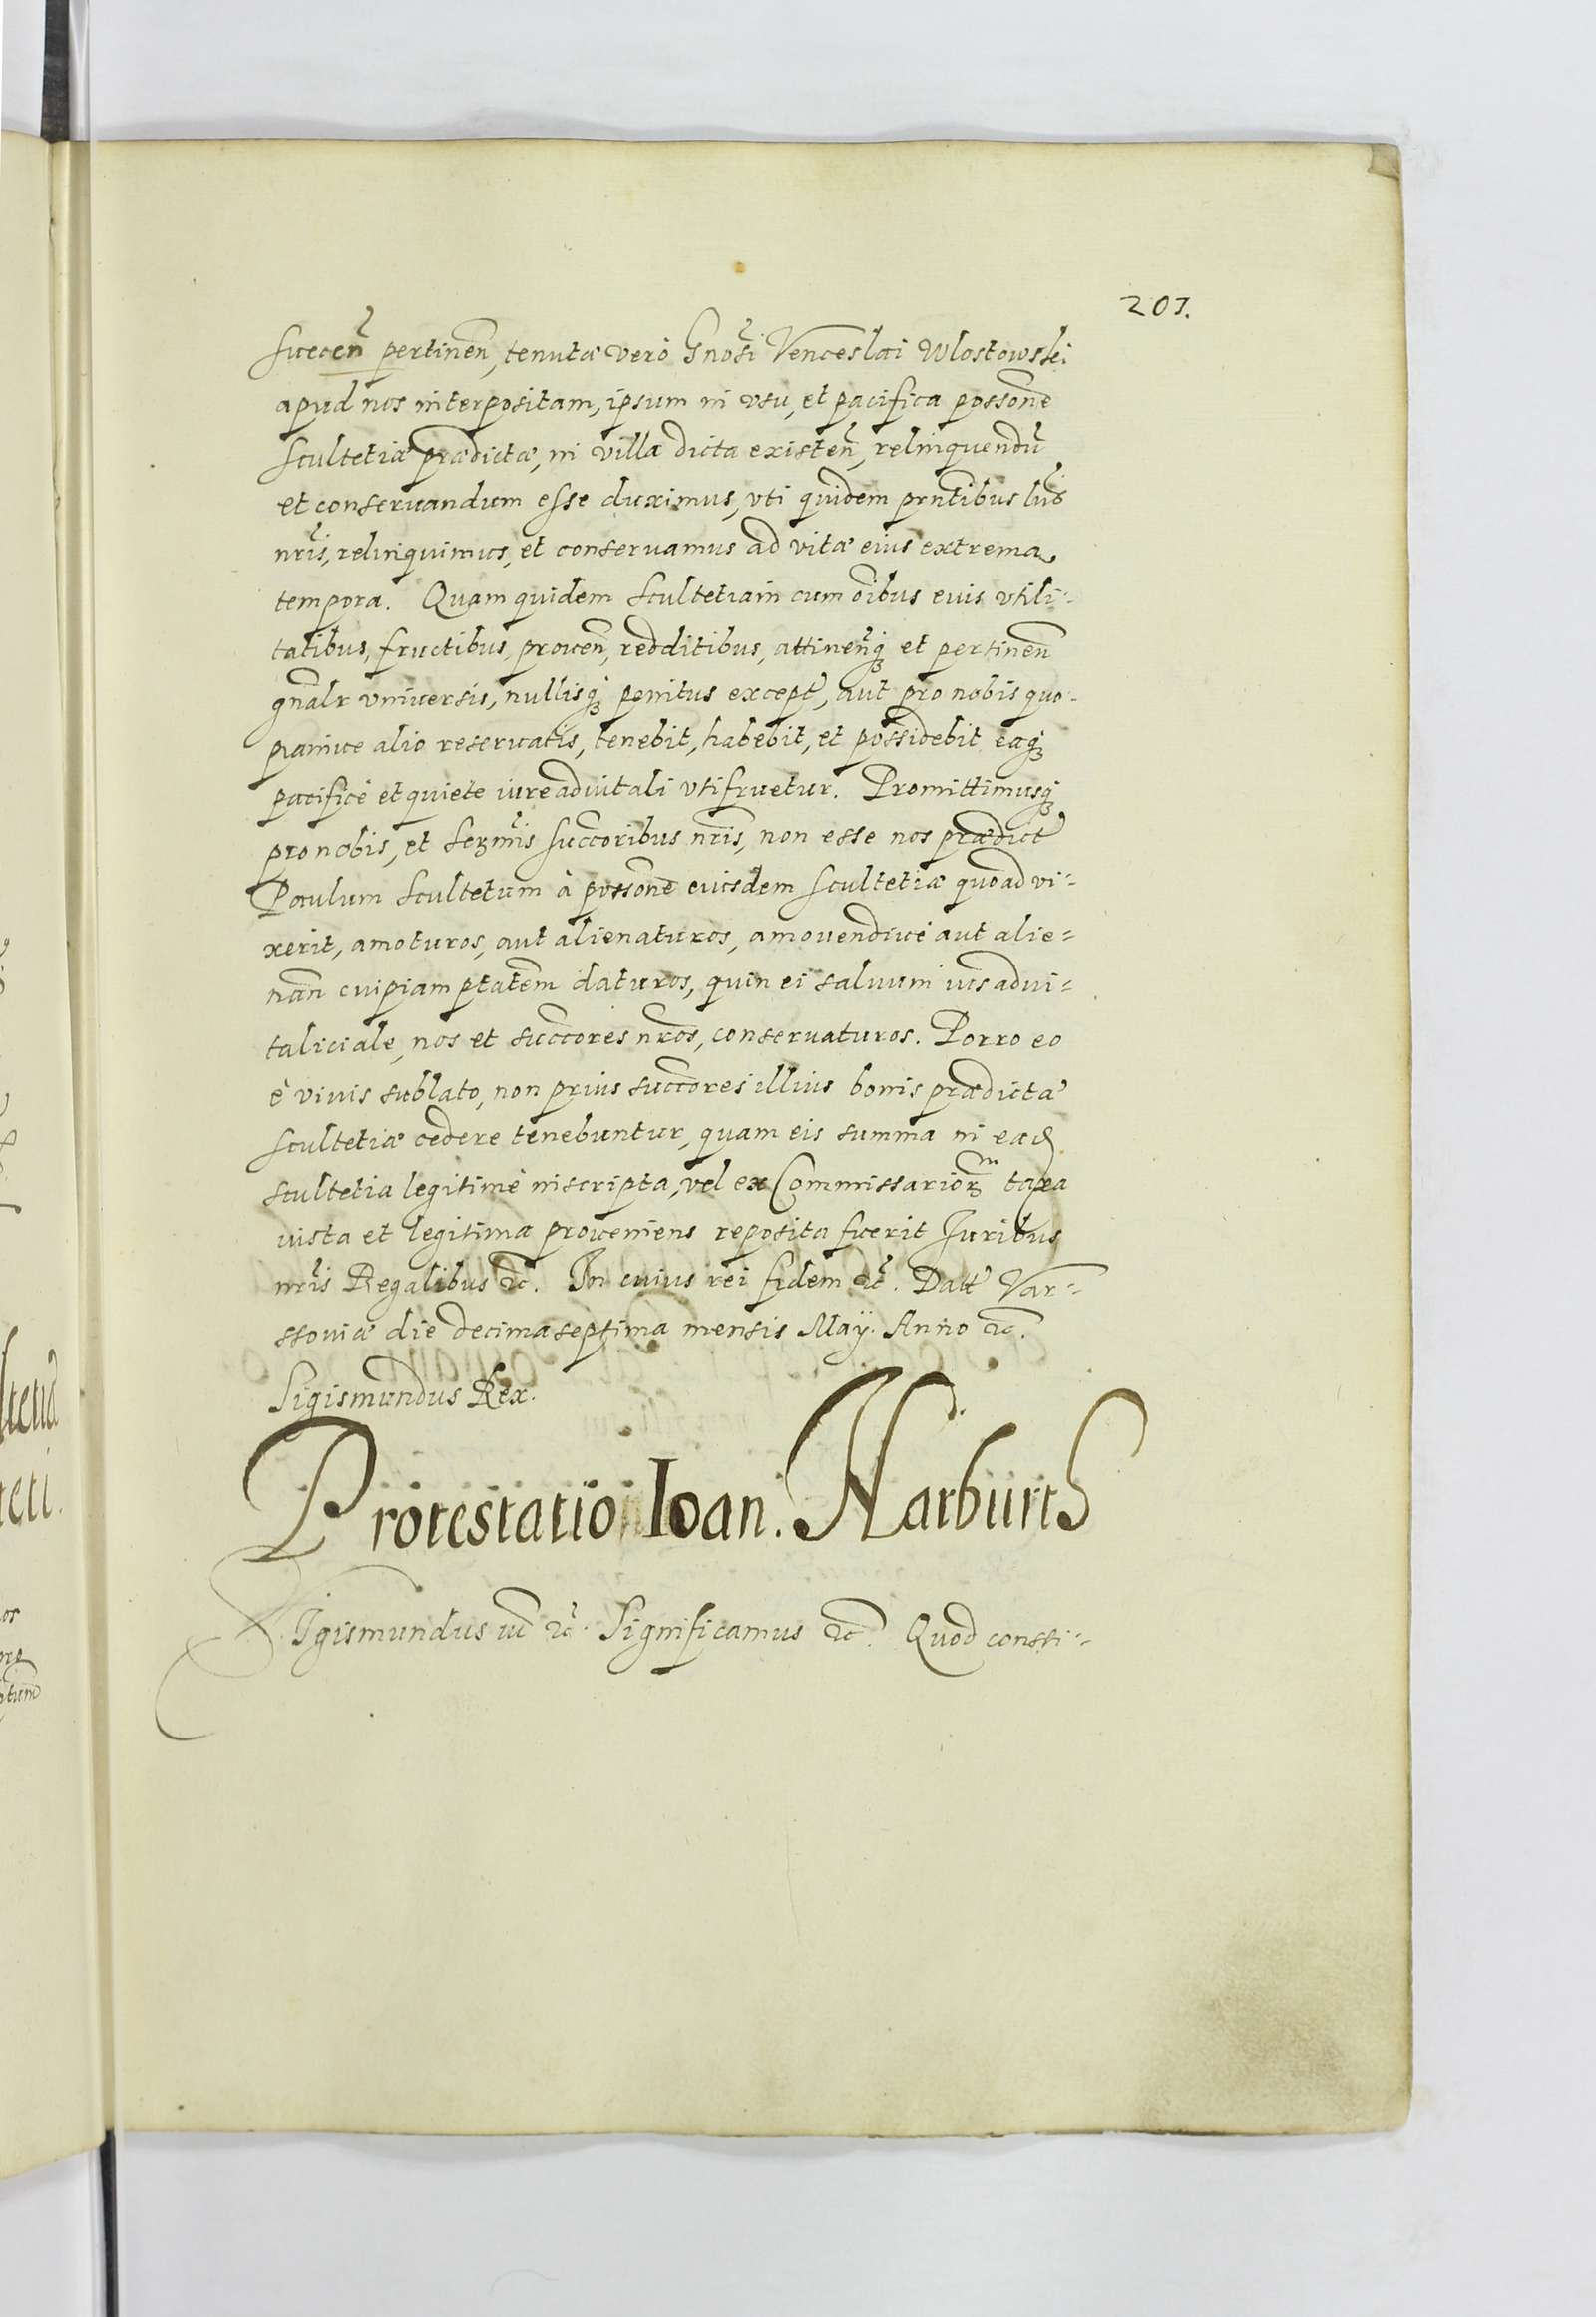 201.
succeñ pertineñ, tenutæ verò Gnosi Venceslai Wlostowski
apud nos interpositam, ipsum in vsu, et pacifica possone
Scultetiæ prædictæ, in villa dicta existeñ, relinquendũ
et conseruandum esse duximus, vti quidem pñtibus lris
nris, relinquimus, et conseruamus ad vitæ eius extrema
tempora. Quam quidem Scultetiam cum oibus euis vtili=
tatibus, fructibus, proueñ, redditibus, attineñq et pertineñ
gnalr vniuersis, nullisq penitus except, aut pro nobis quo-
piamue alio reseruatis, tenebit, habebit, et possidebit eaq
pacificè et quietè iure aduitali vtifruetur. Promittimusq
pro nobis, et Sermis succoribus nris, non esse nos prædict
Paulum Scultetum à possone eiusdem Scultetiæ quoad vi=
xerit, amoturos, aut alienaturos, amouendiuè aut alie=
nañ cuipiam ptatem daturos, quin ei saluum ius adui=
taliciale, nos et succores nros, conseruaturos. Porro eo
è viuis sublato, non prius succores illius bonis prædictæ
Scultetiæ cedere tenebuntur, quam eis summa in ead
scultetia legitimè inscripta, vel ex Commissariorm taxa
iusta et legitima proueniens reposita fuerit Juribus
nris Regalibus etc. In cuius rei fidem etc. Datt Var=
ssouiæ die decimaseptima mensis May. Anno etc.
Sigismundus Rex.
Protestatio Ioan. Harburth
Sigismundus etc. Significamus etc. Quod consti=